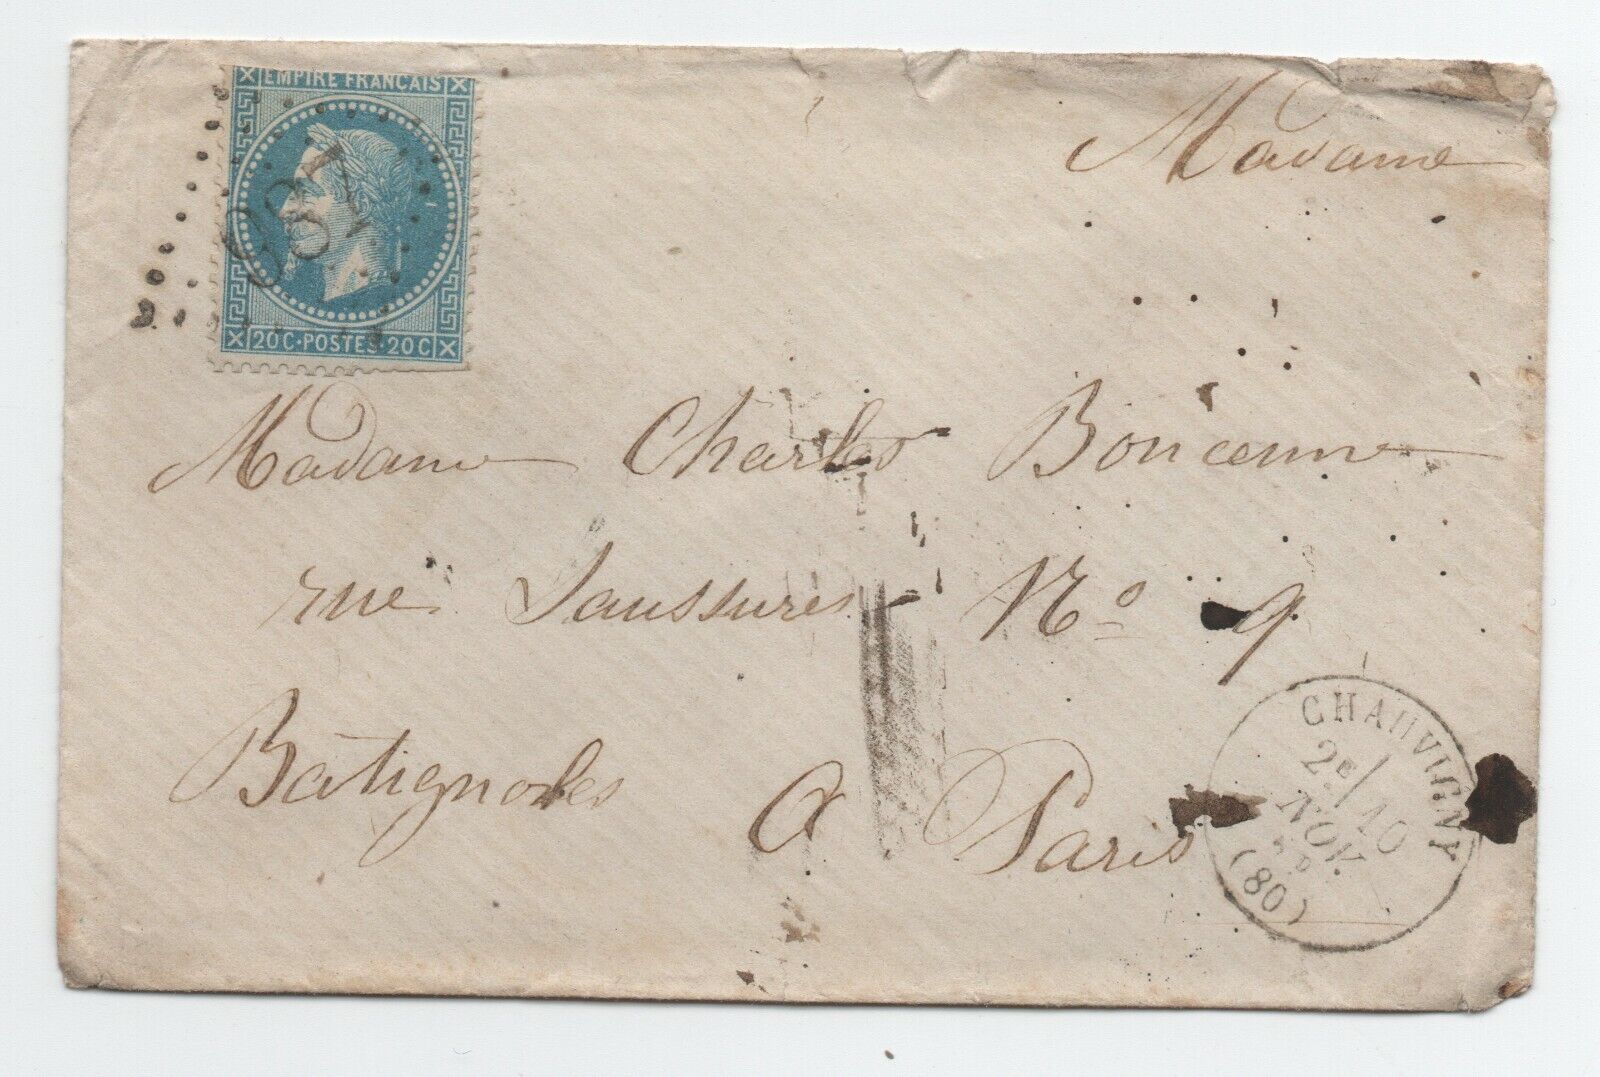 EMPIRE FRANÇAIS
987
20 C · POSTES · 20 C
Madame
Madame Charles Boncenne
rue Saussures N° 9
Batignoles à Paris
CHAUVIGNY
2e / 10
NOV.
(80)